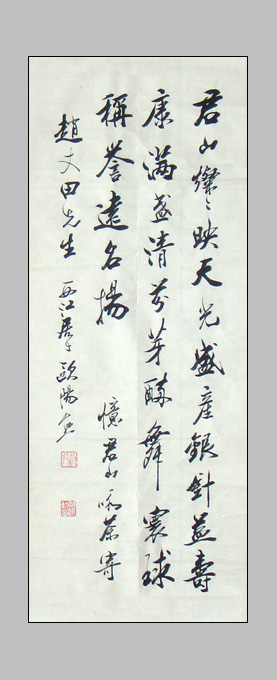 君山灿々映天光盛產銀針益壽
康滿盞清芬芽醉舞寰球
稱誉遠名揚
憶君山咏茶寄
趙文田先生 西江居士歐陽